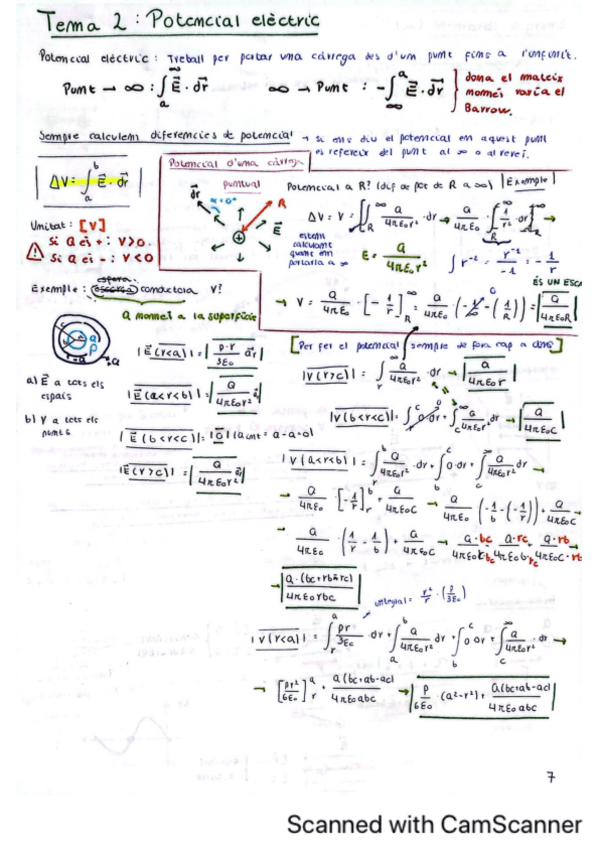 Tema 2: Potencial elèctric
Potencial elèctric: Treball per portar una càrrega des d'un punt fins a l'infinit.
Punt → ∞ : ∫ₐ^∞ E⃗ · dr⃗
∞ → Punt : -∫_∞^a E⃗ · dr⃗
dona el mateix
només varia el
Barrow.
Sempre calculem diferències de potencial → si ens diu el potencial en aquest punt
es refereix del punt al ∞ o al revés.
ΔV = ∫ₐ^b E⃗ · dr⃗
Unitat: [V]
Si Q és +: V>0
Si Q és -: V<0
Potencial d'una càrrega
puntual
dr⃗
α=0°
R
E⃗
Potencial a R? (dif de pot de R a ∞) | Exemple
ΔV = V = ∫_R^∞ Q/4πε₀r² · dr → Q/4πε₀ · ∫_R^∞ 1/r² · dr →
estem
calculant
quant em
portaria a ∞
E = Q/4πε₀r²
∫ r⁻² = r⁻¹/-1 = -1/r
ÉS UN ESCA
→ V = Q/4πε₀ · [-1/r]_R^∞ = Q/4πε₀ · (-1/∞ - (-1/R)) = Q/4πε₀R
Exemple: esfera conductora V?
Q només a la superfície
a) E⃗ a tots els
espais
b) V a tots els
punts
|E(r<a)| = ρ·r/3ε₀ û_r
|E(a<r<b)| = Q/4πε₀r²
|E(b<r<c)| = |0⃗| (Q_int = Q-Q=0)
|E(r>c)| = Q/4πε₀r²
[Per fer el potencial sempre de fora cap a dins]
|V(r>c)| = ∫_r^∞ Q/4πε₀r² · dr → Q/4πε₀r
|V(b<r<c)| = ∫_r^c 0·dr + ∫_c^∞ Q/4πε₀r² dr → Q/4πε₀c
|V(a<r<b)| = ∫_r^b Q/4πε₀r² · dr + ∫_b^c 0·dr + ∫_c^∞ Q/4πε₀r² dr →
→ Q/4πε₀ · [-1/r]_r^b + Q/4πε₀c → Q/4πε₀ (-1/b - (-1/r)) + Q/4πε₀c →
→ Q/4πε₀ · (1/r - 1/b) + Q/4πε₀c → Q·bc/4πε₀r·bc - Q·rc/4πε₀b·rc + Q·rb/4πε₀c·rb
→ Q·(bc+rb-rc)/4πε₀rbc
integral = r²/r · (ρ/3ε₀)
|V(r<a)| = ∫_r^a ρr/3ε₀ · dr + ∫_a^b Q/4πε₀r² dr + ∫_b^c 0 dr + ∫_c^∞ Q/4πε₀r² · dr →
→ [ρr²/6ε₀]_r^a + Q(bc+ab-ac)/4πε₀abc → ρ/6ε₀ · (a²-r²) + Q(bc+ab-ac)/4πε₀abc
7
Scanned with CamScanner